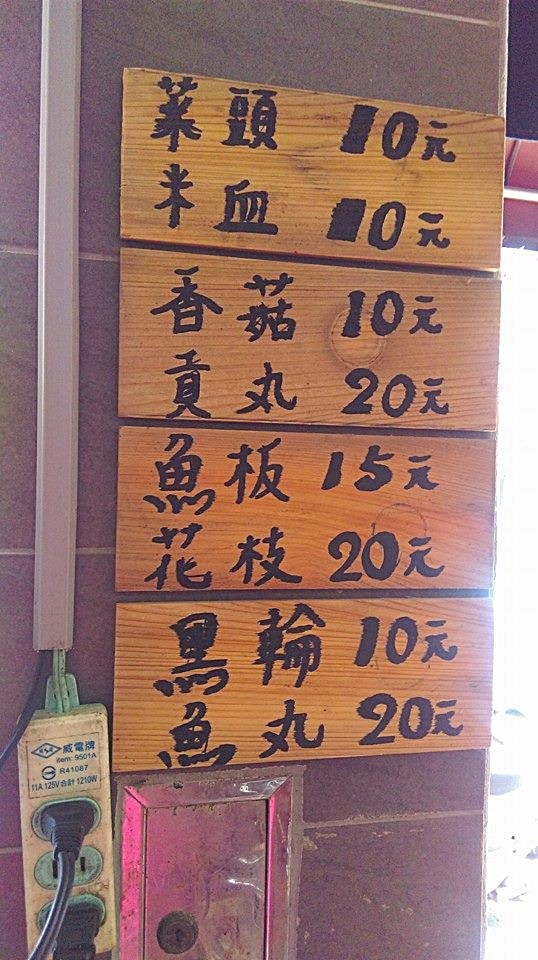 菜頭 10元
米血 10元
香菇 10元
貢丸 20元
魚板 15元
花枝 20元
黑輪 10元
魚丸 20元
威電牌
item: 9501A
R41087
11A 125V合計 1210W